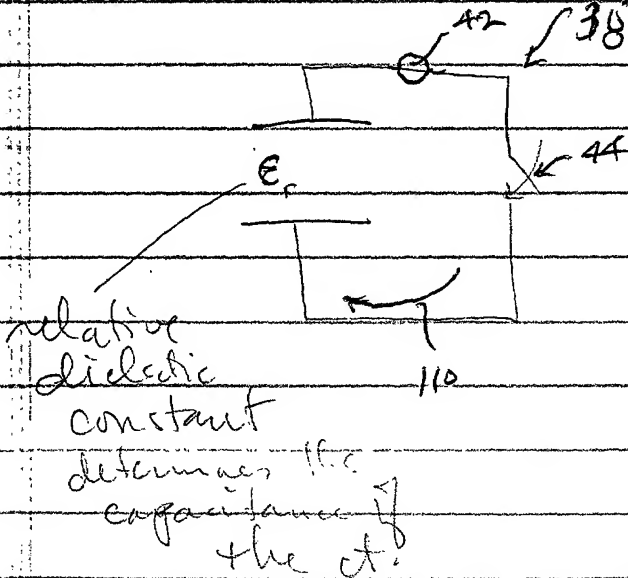 42
38
44
εr
110
relative
dielectric
constant
determines the
capacitance if
the ct.